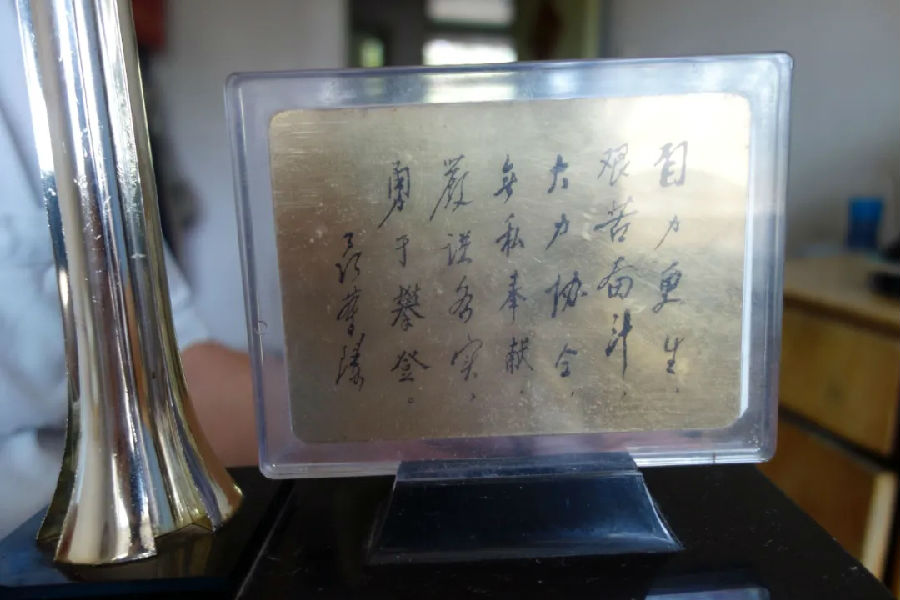 自力更生，
艰苦奋斗，
大力协仝，
无私奉献，
严谨务实，
勇于攀登。
聂荣臻